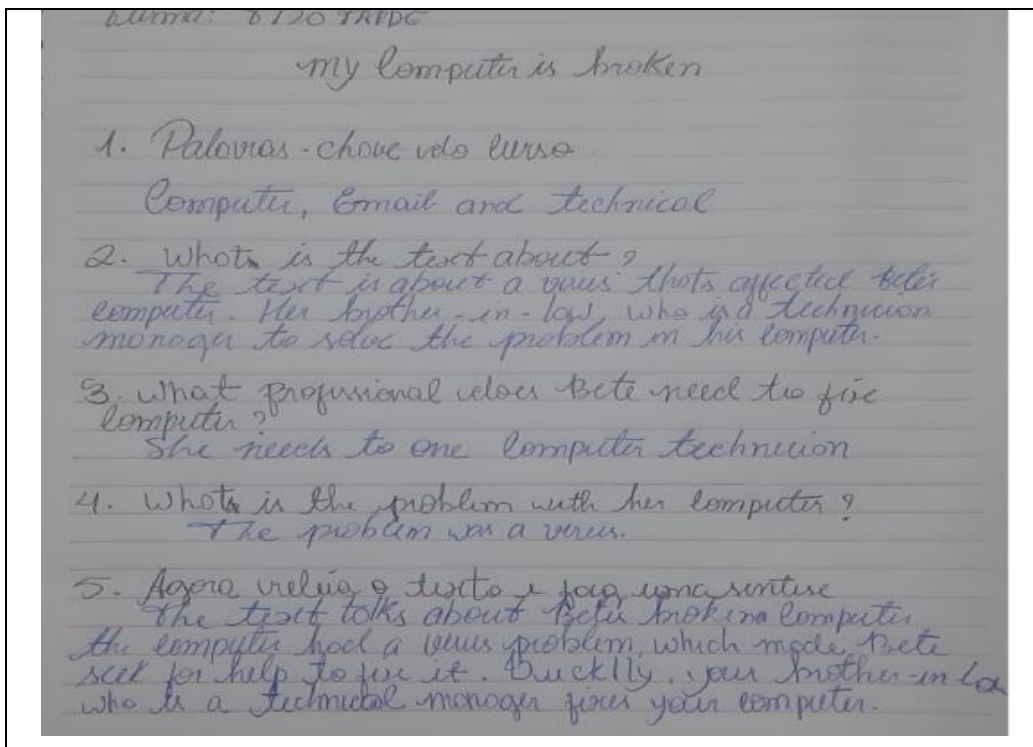 my Computer is broken
1. Palavras-chave do curso
Computer, Email and technical
2. Whats is the text about?
The text is about a virus thats affected Bete's
computer. Her brother-in-law, who is a technicion
manager to solve the problem in his computer.
3. What profissional does Bete need to fixe
computer?
She needs to one computer technicion
4. Whats is the problem with her computer?
The problem was a virus.
5. Agora releia o texto e faça uma sintise
The text talks about Bete's broking computer
the computer had a virus problem, which made Bete
seek for help to fixe it. Quicklly, your brother-in-law
who is a technical manager fixes your computer.